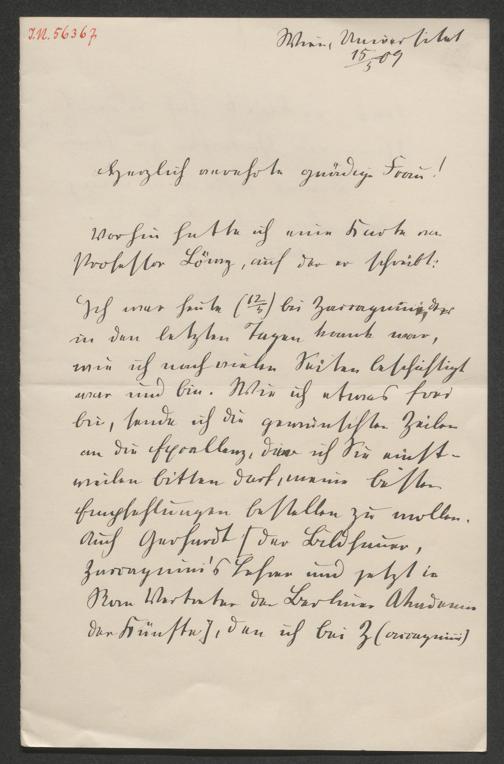 I.N. 56367
Wien, Universität
15/5 09
Herzlich verehrte gnädige Frau!
Vorhin hatte ich eine Karte von
Professor Löwy, auf der er schreibt:
Ich war heute (12/5) bei Zarragnini, der
in den letzten Tagen krank war,
wie ich nach vielen Seiten beschäftigt
war und bin. Wie ich etwas frei
bin, sende ich die gewünschten Zeilen
an die Exzellenz, der ich Sie einst-
weilen bitten darf, meine besten
Empfehlungen bestellen zu wollen.
Auch Gerhardt [der Bildhauer,
Lehrer und jetzt in
Rom Vertreter der Berliner Akademie
der Künste], den ich bei Z